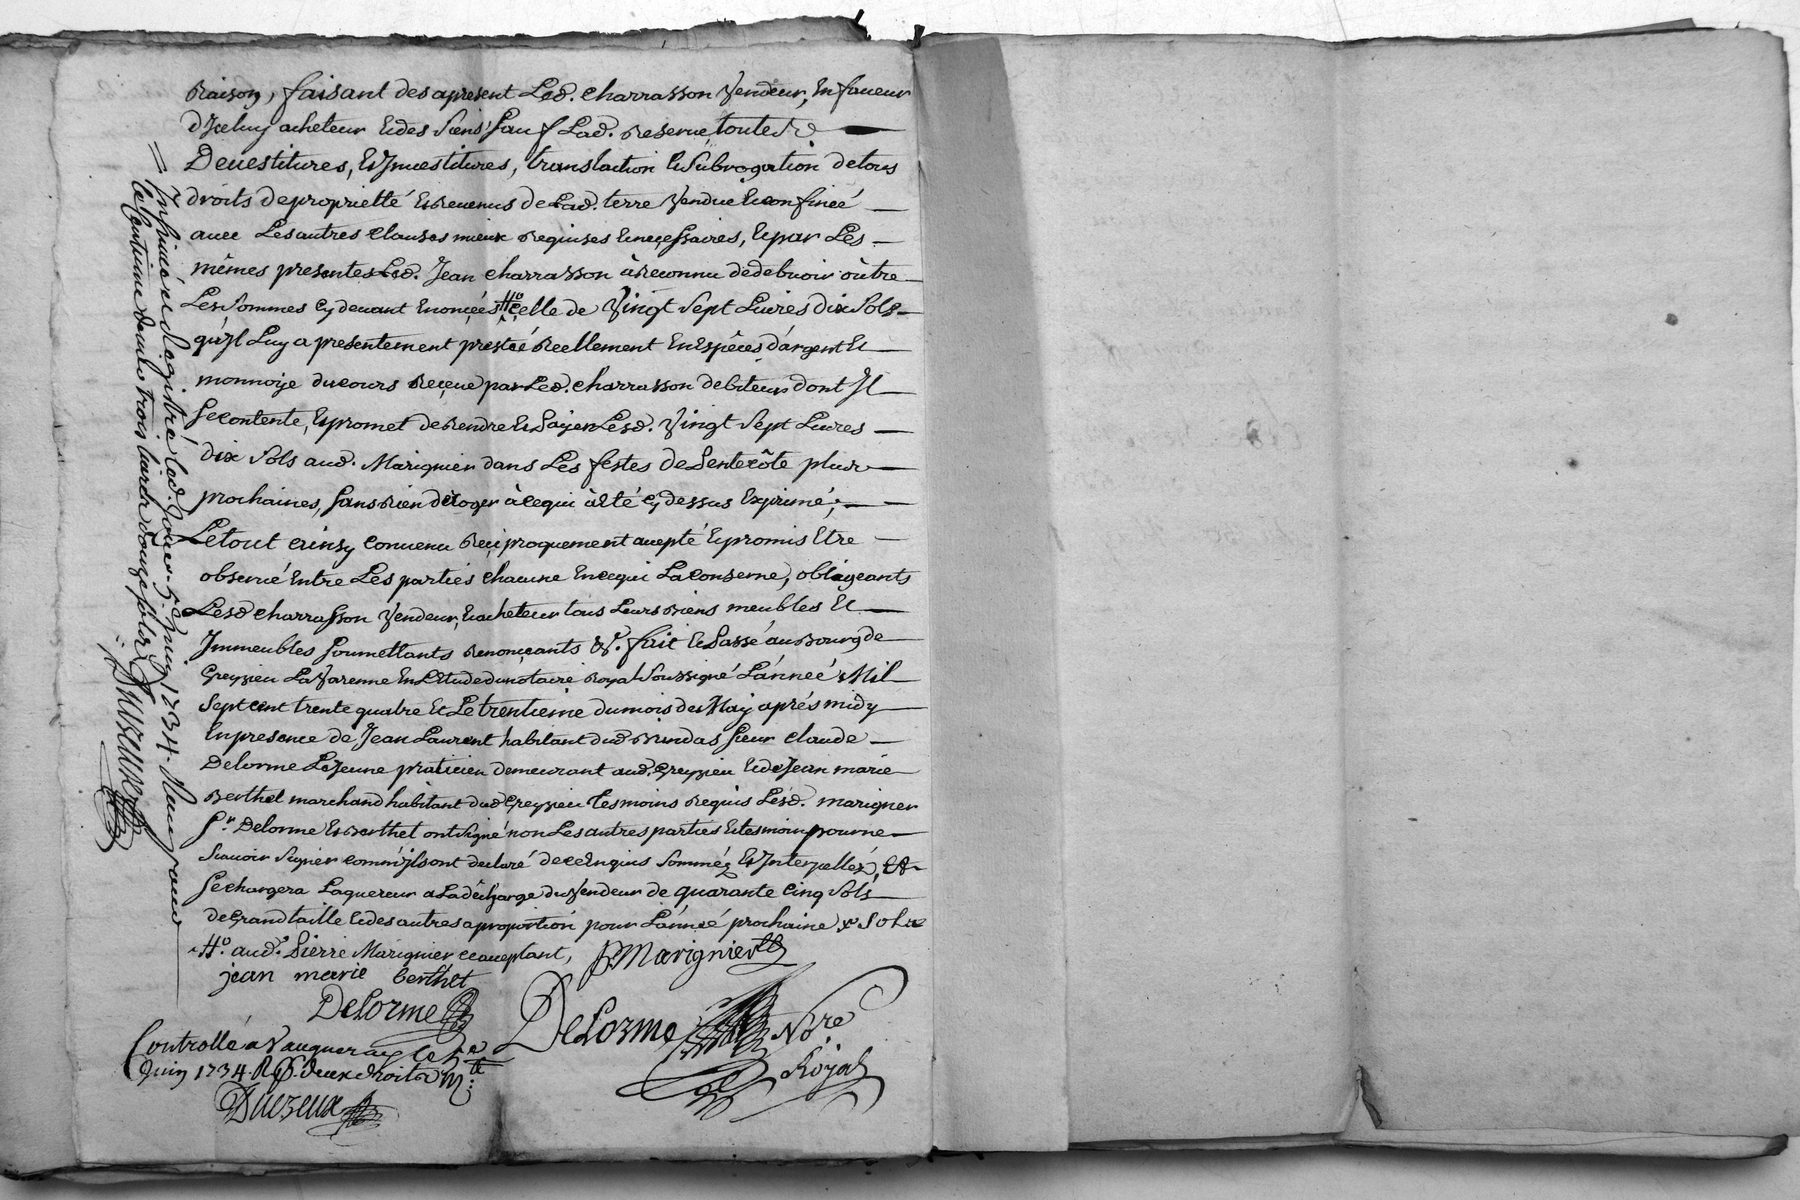 Raison, faisant des apresent Led. charrasson Vendeur, En faveur
d'Jceluy acheteur Et des siens sauf Lad. Reserve toutes
Devestitures, Et Jnvestitures, translaction Et Subrogation de tous
droits de proprietté Et Revenus de Lad. terre Vendue Et confinéé
avec Les autres clauses mieux Requises Et neçessaires, Et par Les
mêmes presentes Led. Jean charrasson à Reconnu de debvoir oûtre
Les sommes cy devant Enonçées # celle de Vingt Sept Livres dix Sols
qu'jl Luy a presentement presté Réellement En Espêces d'argent Et
monnoye du cours Reçeue par Led. charrasson debiteur dont Jl
se contente, Et promet de Rendre Et Payer Lesd. Vingt Sept Livres
dix Sols aud. Marignier dans Les festes de Pentecôte plus
prochaines, sans Rien déroger à ce qui à Eté cy dessus Exprimé;
Le tout ainsy convenu Reçiproquement accepté Et promis Etre
observé Entre Les partiés chacune En ce qui La conserne, obligeants
Lesd charrasson Vendeur, Et acheteur tous Leurs Biens meubles Et
Jmmeubles soumettants Renonçants &c. fait Et Passé au Bourg de
Greyzieu La Varenne En L'Etude du notaire Royal Soussigné L'année Mil
Sept cent trente quatre Et Le trentieme du mois de May aprés midy
En presence de Jean Laurent habitant dud Brindas sieur claude
Delorme Le Jeune praticien demeurant aud. Greyzieu Et de Jean marie
Berthet marchand habitant dud Greyzieu tesmoins Requis Lesd. marigner
Sr. Delorme Et Berthet ont signé non Les autres parties Et tesmoin pour ne
Scavoir Signer comm'jls ont declaré de ce Enquis Somméz Et Jnterpellez, Et
se chargera Laquereur a La décharge du Vendeur de quarante cinq Sols
de Grand taille Et des autres a proportion pour L'année prochaine
# aud. Pierre Marignier acceptant, P Marignier
jean marie berthet
Delorme
Delorme Nore
Royal
Controllé a Vaugneray le 5e
Juin 1734. R deux droits
Duezeux
Insinué & Registré led. Jour 5e. Juin 1734. Reçu pour
le Centime denier trois livres douze sols
Duezeux